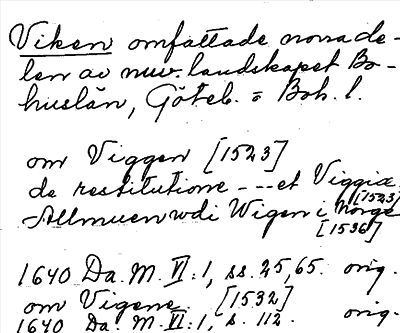 Viken omfattade norra de-
len av nuv. landskapet Bo-
huslän, Göteb. o Boh. l.
om Viggen [1523]
de restitutione --- et Viggiæ [1523]
Allmuen wdi Wigen i Norge [1536]
1640 Da. M. VI:1, ss. 25, 65. orig.
om Vigene [1532]
1640 Da. M. VI:1, s. 112. orig.